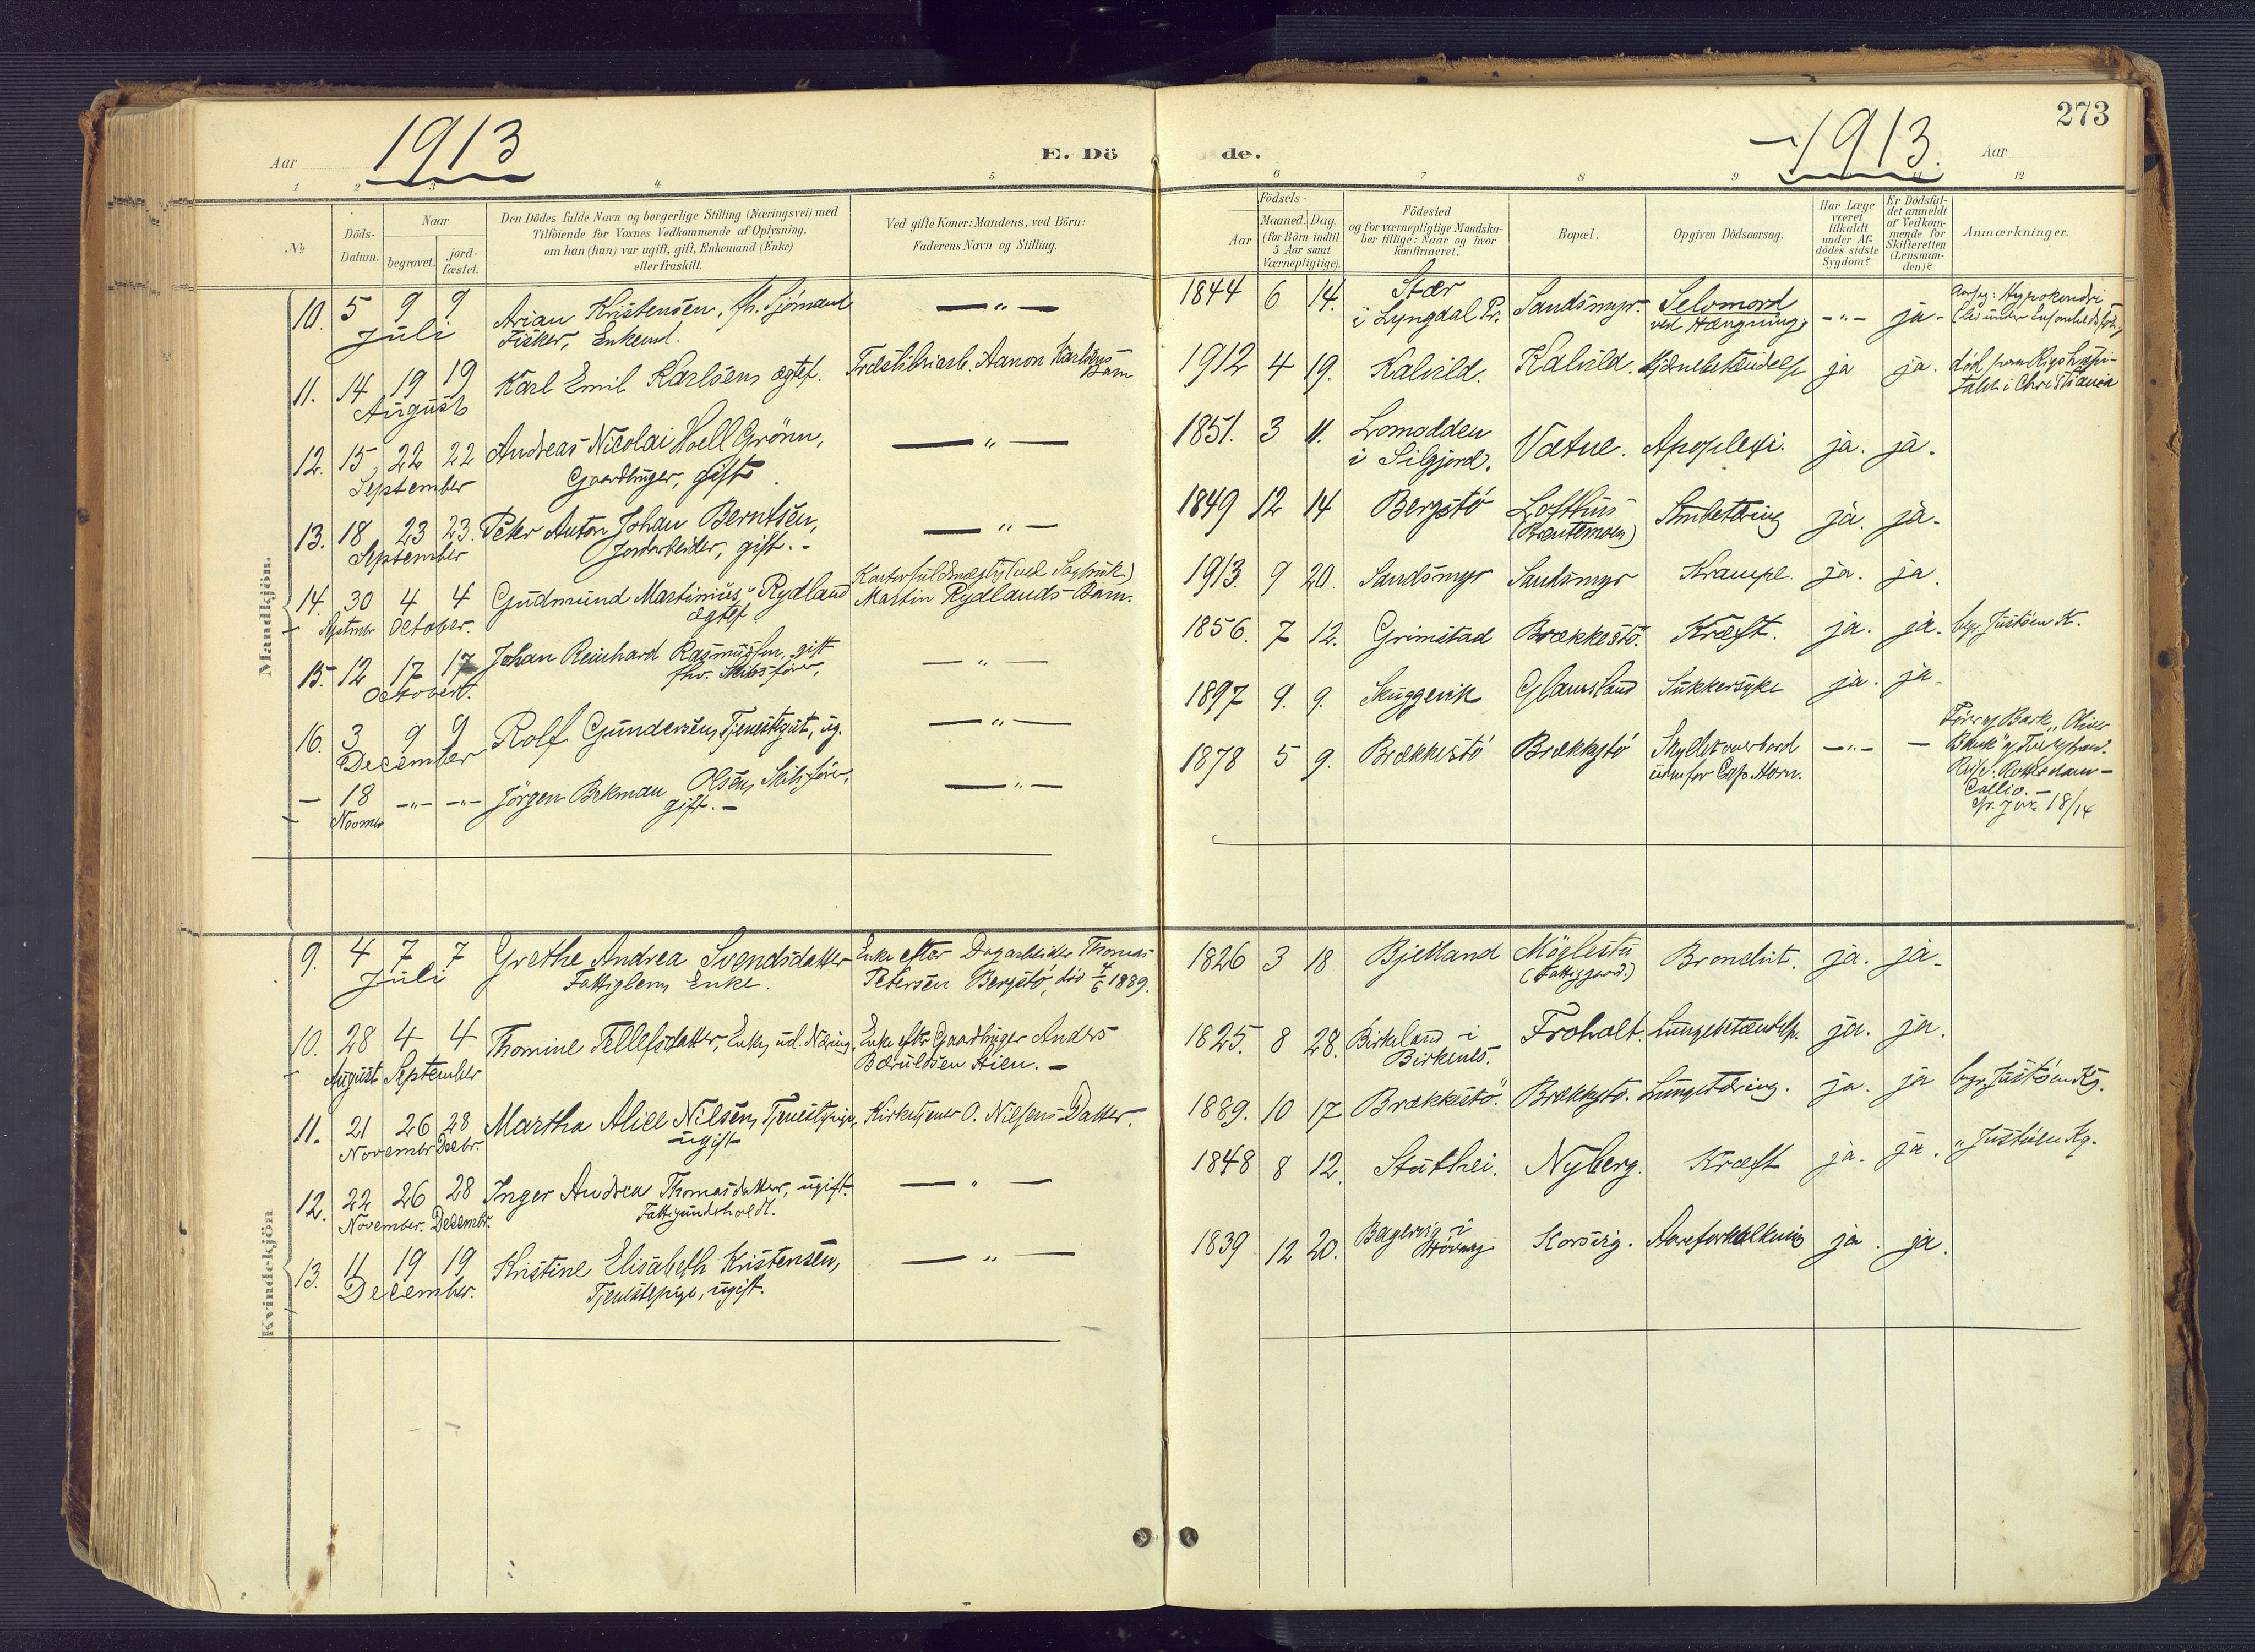 273
1913
Aar
E. Dö
de.
1913.
Aar
1 2 3 4 5 6 7 8 9 11 12
No
Döds-Datum.
Naar
begravet.
jord-fæstet.
Den Dödes fulde Navn og borgerlige Stilling (Næringsvei) med
Tilföiende for Voxnes Vedkommende af Oplysning,
om han (hun) var ugift, gift, Enkemand (Enke)
eller fraskilt.
Ved gifte Koner: Mandens, ved Börn:
Faderens Navn og Stilling.
Födsels-
Aar
Maaned.
Dag.
(for Börn indtil
5 Aar samt
Værnepligtige).
Födested
og for værnepligtige Mandska-
ber tillige: Naar og hvor
konfirmeret.
Bopæl.
Opgiven Dödsaarsag.
Har Læge
været
tilkaldt
under Af-
dödes sidste
Sygdom?
Er Dödsfal-
det anmeldt
af Vedkom-
mende for
Skifteretten
(Lensman-
den)?
Anmærkninger.
Mandkjön.
10. 5 9 9 Arian Kristensen, fh. Sjömand — " — 1844 6 14. Stær Sandsmyr. Selvmord — " — ja.
Juli Fisker, Enkemd. i Lyngdal Pr. ved Hængning; Hypokondri
11. 14 19 19 Karl Emil Karlsen, ægtef. Træsliberiarb. Aanon Karlsens Barn 1912 4 19. Kalvild. Kalvild. Hjernebetændelse ja ja. död paa Rigshospi-
August talet i Christiania
12. 15 22 22 Andreas Nicolai Hoell Grönn, — " — 1851. 3 11. Lomodden Vatne. Apoplexi. ja. ja.
September Gaardbruger, gift. i Siljord.
13. 18 23 23. Peter Anton Johan Berntsen, — " — 1849 12 14 Bergstö Lofthus ja. ja.
September Jordarbeider, gift. (Brentemoen)
14. 30 4 4 Gudmund Martinius Rydland Kontorfuldmægtig (ved Sagbruk) 1913. 9 20. Sandsmyr Sandsmyr Krampe. ja. ja.
September October. ægtef Martin Rydlands Barn.
15. 12 17 17 Johan Reinhard Rasmussen, gift — " — 1856. 7 12. Grimstad Brækkestö. Kræft. ja. ja. begr. Justöen K.
October. fhv. Skibsförer,
16. 3 9 9 Rolf Gundersen, Tjenestegut, ug. — " — 1897 9. 9. Skuggevik Glamsland Sukkersyke ja. ja.
December
— 18 — " — — " — Jörgen Bekman Olsen, Skibsförer, — " — 1878 5 9. Brækkestö Brækkestö Skyllet overbord — " — — Förer af Bark „Oliver
Novmbr gift. — udenfor Cap Horn. Bank" af Tvedestrand.
Reise: Rotterdam —
Callio. —
18/14
Kvindekjön
9. 4 7 7 Grethe Andrea Svendsdatter Enke efter Dagarbeider Thomas 1826 3 18 Bjelland Möglestu Bronchit. ja. ja.
Juli Fattiglem, Enke. Petersen Bergstö, död 4/6 1889. (Fattiggaard.)
10. 28 4 4 Thomine Tellefsdatter, Enke, ud. Næring, Enke efter Gaardbruger Anders 1825. 8 28. Birkeland i Froholt. Lungebetændelse. ja. ja.
August September Bæruldsen Stien. — Birkenes.
11. 21 26 28 Martha Alice Nilsen, Tjenestepige, Kirketjener O. Nilsens Datter. 1889. 10 17 Brækkestö. Brækkestö. Lungetæring. ja. ja begr. Justöen Kg.
November Decbr. ugift
12. 22 26 28 Inger Andrea Thomasdatter, ugift. — " — 1848 8 12. Stuthei. Nyberg. Kræft ja. ja. " Justöen Kg.
November. Decembr. Fattigunderholdt.
13. 11 19 19 Kristine Elisabeth Kristensen, — " — 1839 12 20. i Korsvig. Aareforkalkning ja. ja.
December. Tjenestepige, ugift. Hövaag